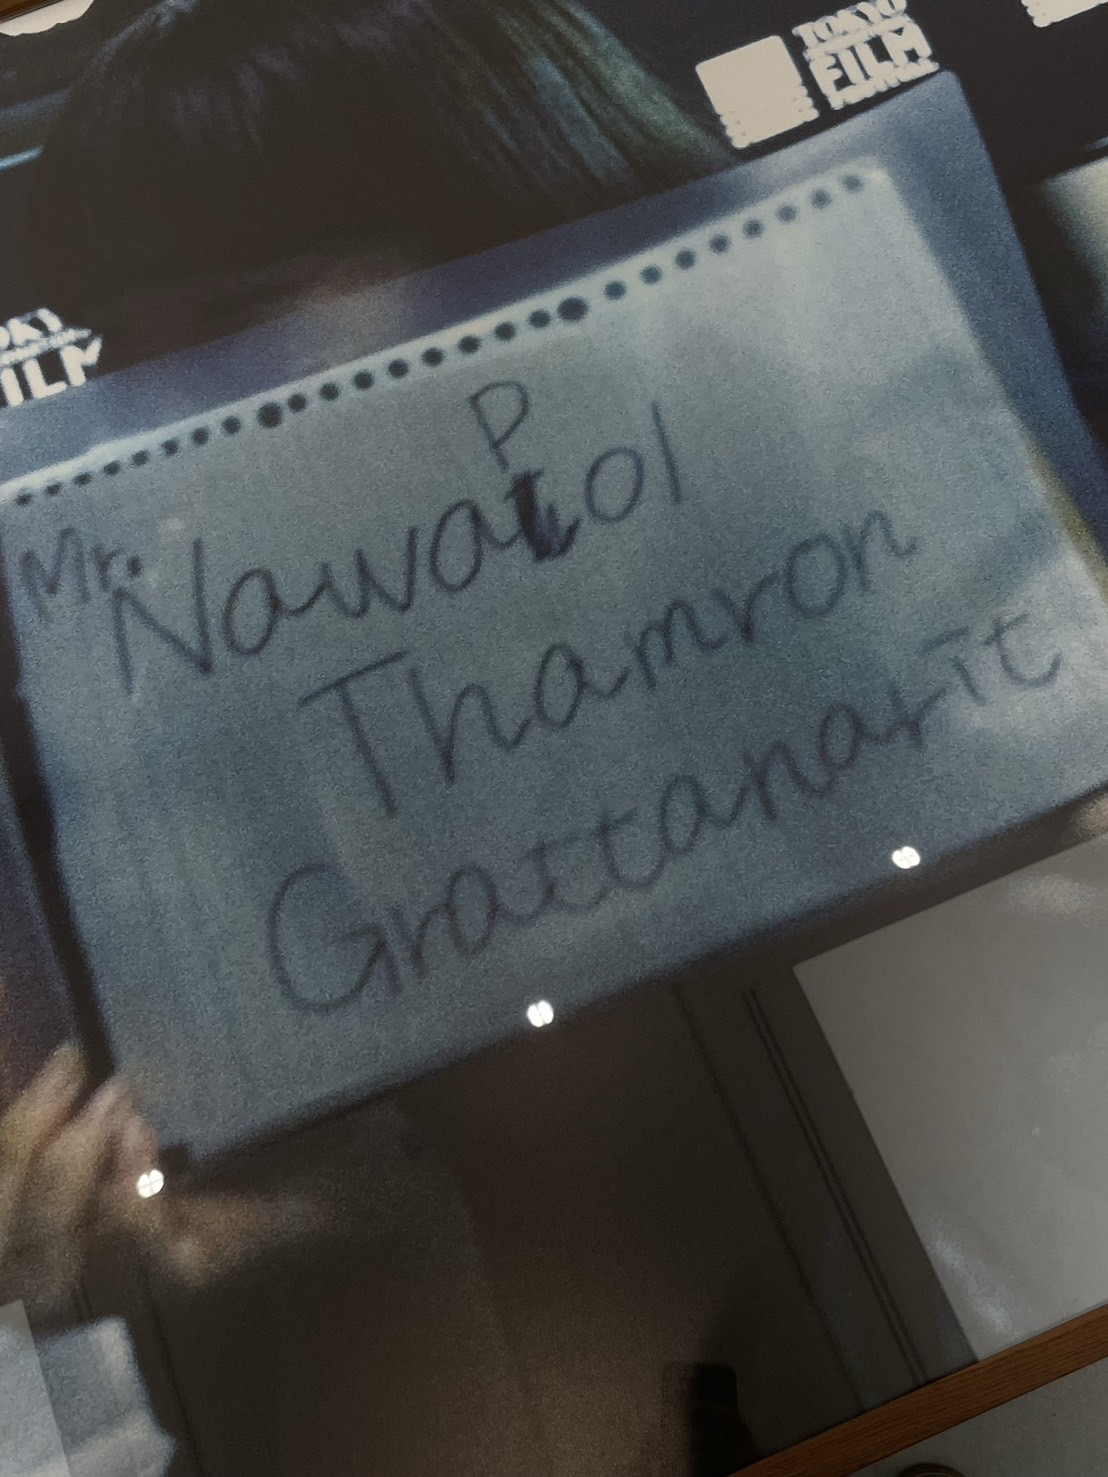 TOKYO
FILM
FILM
P
Mr. Nawatol
Thamron
Grattanarit